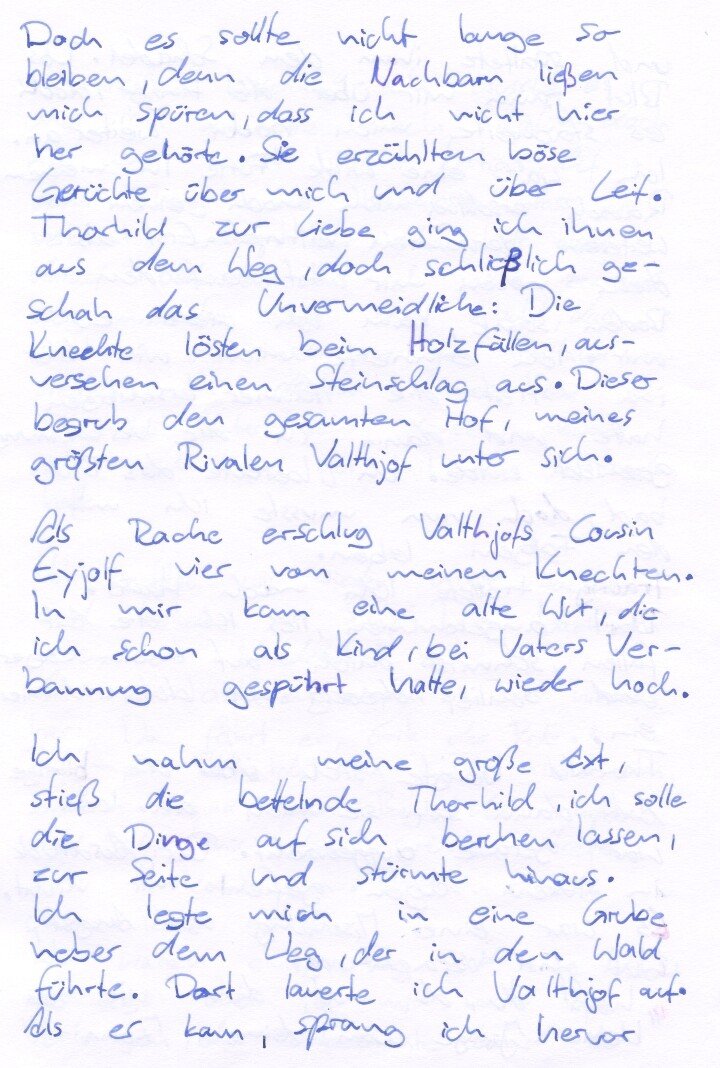 Doch es sollte nicht lange so
bleiben, denn die Nachbarn ließen
mich spüren, dass ich nicht hier
her gehörte. Sie erzählten böse
Gerüchte über mich und über Leif.
Thorhild zur Liebe ging ich ihnen
aus dem Weg, doch schließlich ge-
schah das Unvermeidliche: Die
Knechte lösten beim Holzfällen, aus-
versehen einen Steinschlag aus. Dieser
begrub den gesamten Hof, meines
größten Rivalen Valthjof unter sich.
Als Rache erschlug Valthjofs Cousin
Eyjolf vier von meinen Knechten.
In mir kam eine alte Wut, die
ich schon als Kind, bei Vaters Ver-
bannung gespührt hatte, wieder hoch.
Ich nahm meine große Axt,
stieß die bettelnde Thorhild, ich solle
die Dinge auf sich berhen lassen,
zur Seite und stürmte hinaus.
Ich legte mich in eine Grube
neber dem Weg, der in den Wald
führte. Dort lauerte ich Valthjof auf.
Als er kam, sprang ich hervor